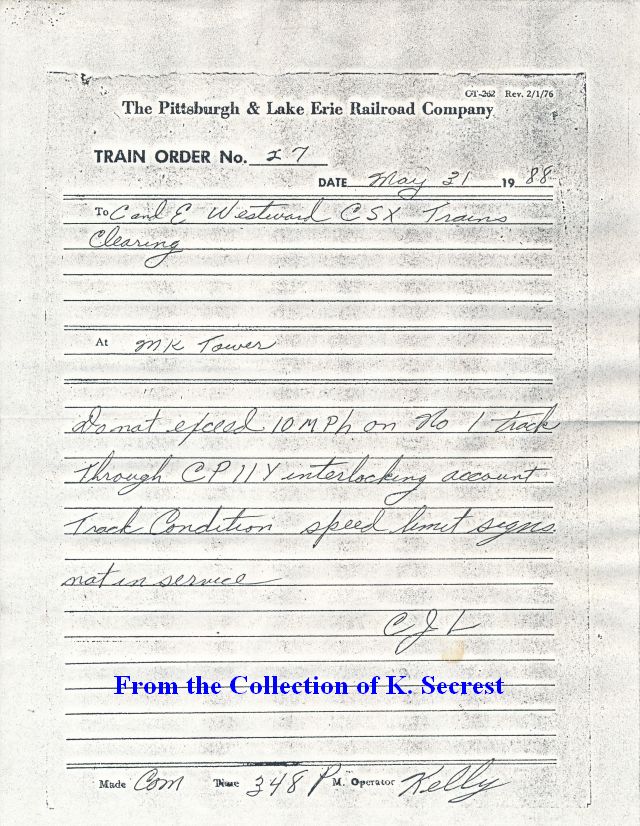 GT-262 Rev. 2/1/76
The Pittsburgh & Lake Erie Railroad Company
TRAIN ORDER No. 27
DATE May 31 1988
To C and E Westward CSX Trains
Clearing
At MK Tower
Do not exceed 10 MPh on No 1 track
Through CP 11Y interlocking account
Track Condition speed limit signs
not in service
CJL
From the Collection of K. Secrest
Made Com Time 348 P M. Operator Kelly